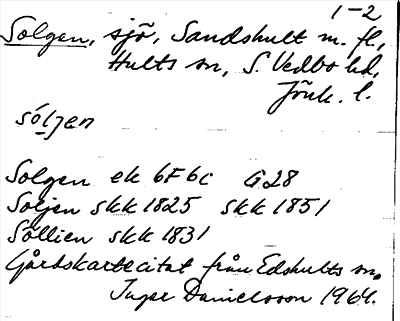 1-2
Solgen, sjö, Sandshult m. fl,
Hults sn, S. Vedbo hd,
Jönk. l.
sóljen
Solgen ek 6F6c G28
Soljen skk 1825 skk 1851
Söllien skk 1831
Gårdskartecitat från Edshults sn,
Inger Danielsson 1964.